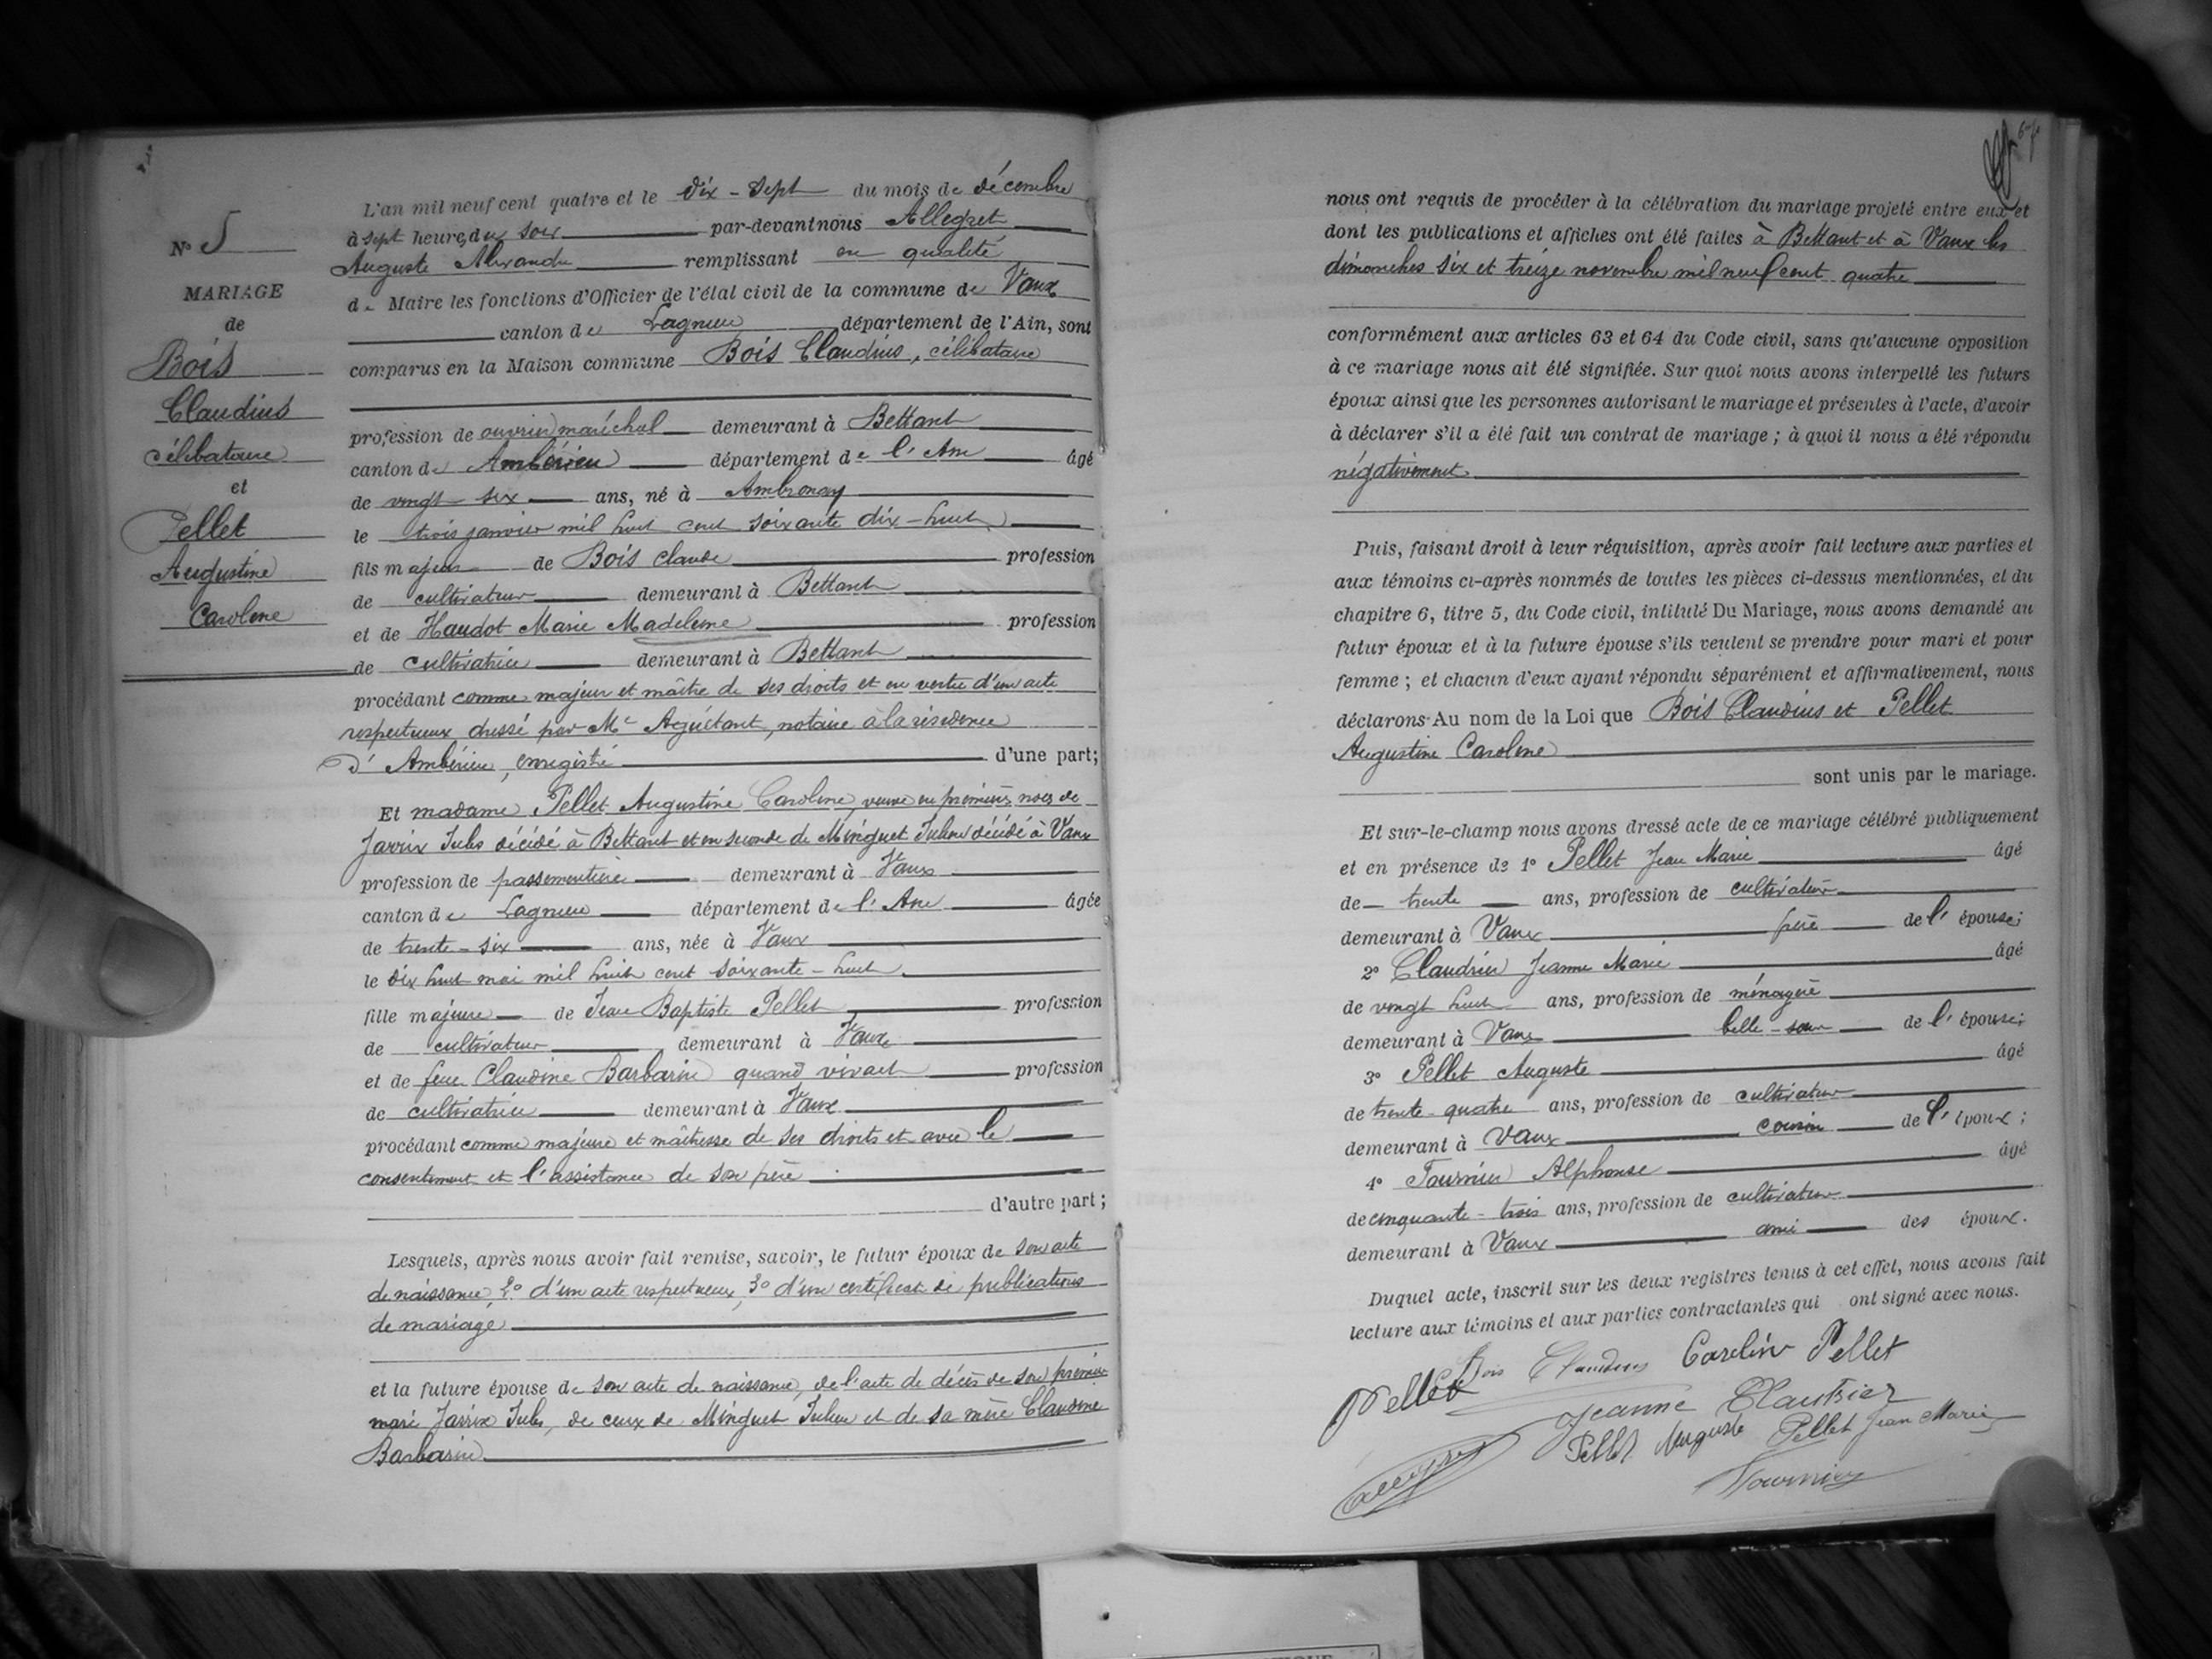 N° 5
MARIAGE
de
Bois
Claudius
célibataire
et
Pellet
Augustine
Caroline
L'an mil neuf cent quatre et le dix-sept du mois de décembre
à sept heures du soir par-devant nous Allegret
Auguste Alexandre remplissant en qualité
de Maire les fonctions d'Officier de l'état civil de la commune de Vaux
canton de Lagnieu département de l'Ain, sont
comparus en la Maison commune Bois Claudius, célibataire
profession de ouvrier maréchal demeurant à Bettant
canton de Ambérieu département de l'Ain âgé
de vingt-six ans, né à Ambronay
le trois janvier mil huit cent soixante dix-huit
fils majeur de Bois Claude profession
de cultivateur demeurant à Bettant
et de Haudot Marie Madeleine profession
de cultivatrice demeurant à Bettant
procédant comme majeur et maître de ses droits et en vertu d'un acte
respectueux dressé par Me Aguétant, notaire à la résidence
d'Ambérieu, enregistré d'une part;
Et madame Pellet Augustine Caroline, veuve en premières noces de
Jarrix Jules décédé à Bettant et en seconde de Minguet Julien décédé à Vaux
profession de passementière demeurant à Vaux
canton de Lagnieu département de l'Ain âgée
de trente-six ans, née à Vaux
le dix huit mai mil huit cent soixante-huit
fille majeure de Jean Baptiste Pellet profession
de cultivateur demeurant à Vaux
et de feue Claudine Barbarin quand vivait profession
de cultivatrice demeurant à Vaux
procédant comme majeure et maîtresse de ses droits et avec le
consentement et l'assistance de son père
d'autre part;
Lesquels, après nous avoir fait remise, savoir, le futur époux de son acte
de naissance, 2° d'un acte respectueux, 3° d'un certificat de publications
de mariage
et la future épouse de son acte de naissance, de l'acte de décès de son premier
mari Jarrix Jules, de ceux de Minguet Julien et de sa mère Claudine
Barbarin
nous ont requis de procéder à la célébration du mariage projeté entre eux et
dont les publications et affiches ont été faites à Bettant et à Vaux les
dimanches six et treize novembre mil neuf cent quatre
conformément aux articles 63 et 64 du Code civil, sans qu'aucune opposition
à ce mariage nous ait été signifiée. Sur quoi nous avons interpellé les futurs
époux ainsi que les personnes autorisant le mariage et présentes à l'acte, d'avoir
à déclarer s'il a été fait un contrat de mariage ; à quoi il nous a été répondu
négativement.
Puis, faisant droit à leur réquisition, après avoir fait lecture aux parties et
aux témoins ci-après nommés de toutes les pièces ci-dessus mentionnées, et du
chapitre 6, titre 5, du Code civil, intitulé Du Mariage, nous avons demandé au
futur époux et à la future épouse s'ils veulent se prendre pour mari et pour
femme ; et chacun d'eux ayant répondu séparément et affirmativement, nous
déclarons Au nom de la Loi que Bois Claudius et Pellet
Augustine Caroline
sont unis par le mariage.
Et sur-le-champ nous avons dressé acte de ce mariage célébré publiquement
et en présence de 1° Pellet Jean Marie âgé
de trente ans, profession de cultivateur
demeurant à Vaux frère de l'épouse;
2° Claudrier Jeanne Marie âgé
de vingt huit ans, profession de ménagère
demeurant à Vaux belle-sœur de l'épouse;
3° Pellet Auguste âgé
de trente-quatre ans, profession de cultivateur
demeurant à Vaux cousin de l'époux ;
4° Fournier Alphonse âgé
de cinquante-trois ans, profession de cultivateur
demeurant à Vaux ami des époux.
Duquel acte, inscrit sur les deux registres tenus à cet effet, nous avons fait
lecture aux témoins et aux parties contractantes qui ont signé avec nous.
Pellet Bois Claudius Caroline Pellet
Jeanne
Pellet Auguste Pellet Jean Marie
Allegret Fournier